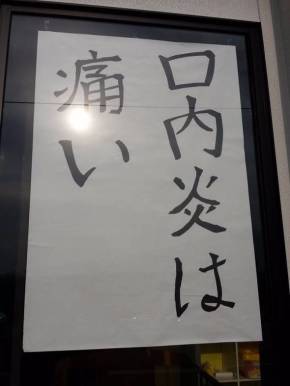 口内炎は
痛い